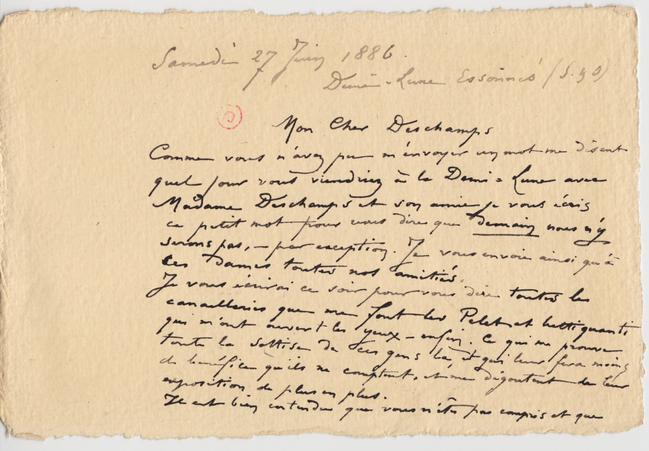 Samedi 27 Juin 1886.
Demi-Lune Essonnes (S. & O)
Mon Cher Deschamps
Comme vous n'avez pu m'envoyer un mot me disant
quel jour vous viendriez à la Demi-Lune avec
Madame Deschamps et son amie je vous écris
ce petit mot pour vous dire que demain nous n'y
serons pas, - par exception. Je vous envoie ainsi qu'à
ces Dames toutes nos amitiés.
Je vous écrirai ce soir pour vous dire toutes les
canailleries que me font les Petit et
qui m'ont ouvert les yeux - enfin. Ce qui me prouve
toute la sottise de ces gens là et qui leur fera moins
de bénéfice qu'ils ne comptent, et me dégoutent de leur
exposition de plus en plus.
Il est bien entendu que vous n'êtes pas compris et que